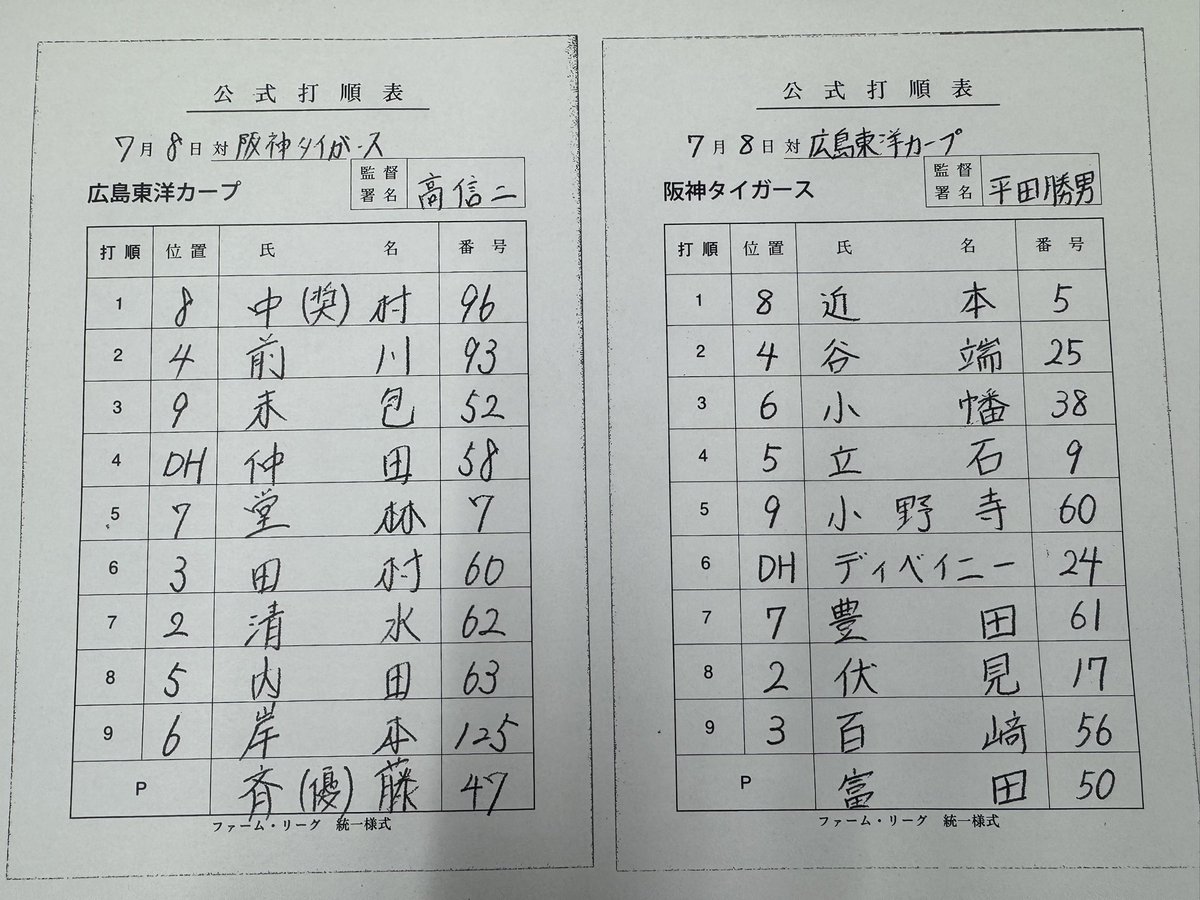 公式打順表
7月8日対阪神タイガース
広島東洋カープ 監督署名 高信二
打順 位置 氏名 番号
1 8 中(奨)村 96
2 4 前川 93
3 9 末包 52
4 DH 仲田 58
5 7 堂林 7
6 3 田村 60
7 2 清水 62
8 5 内田 63
9 6 岸本 125
P 斉(優)藤 47
ファーム・リーグ 統一様式
公式打順表
7月8日対広島東洋カープ
阪神タイガース 監督署名 平田勝男
打順 位置 氏名 番号
1 8 近本 5
2 4 谷端 25
3 6 小幡 38
4 5 立石 9
5 9 小野寺 60
6 DH ディベイニー 24
7 7 豊田 61
8 2 伏見 17
9 3 百﨑 56
P 富田 50
ファーム・リーグ 統一様式